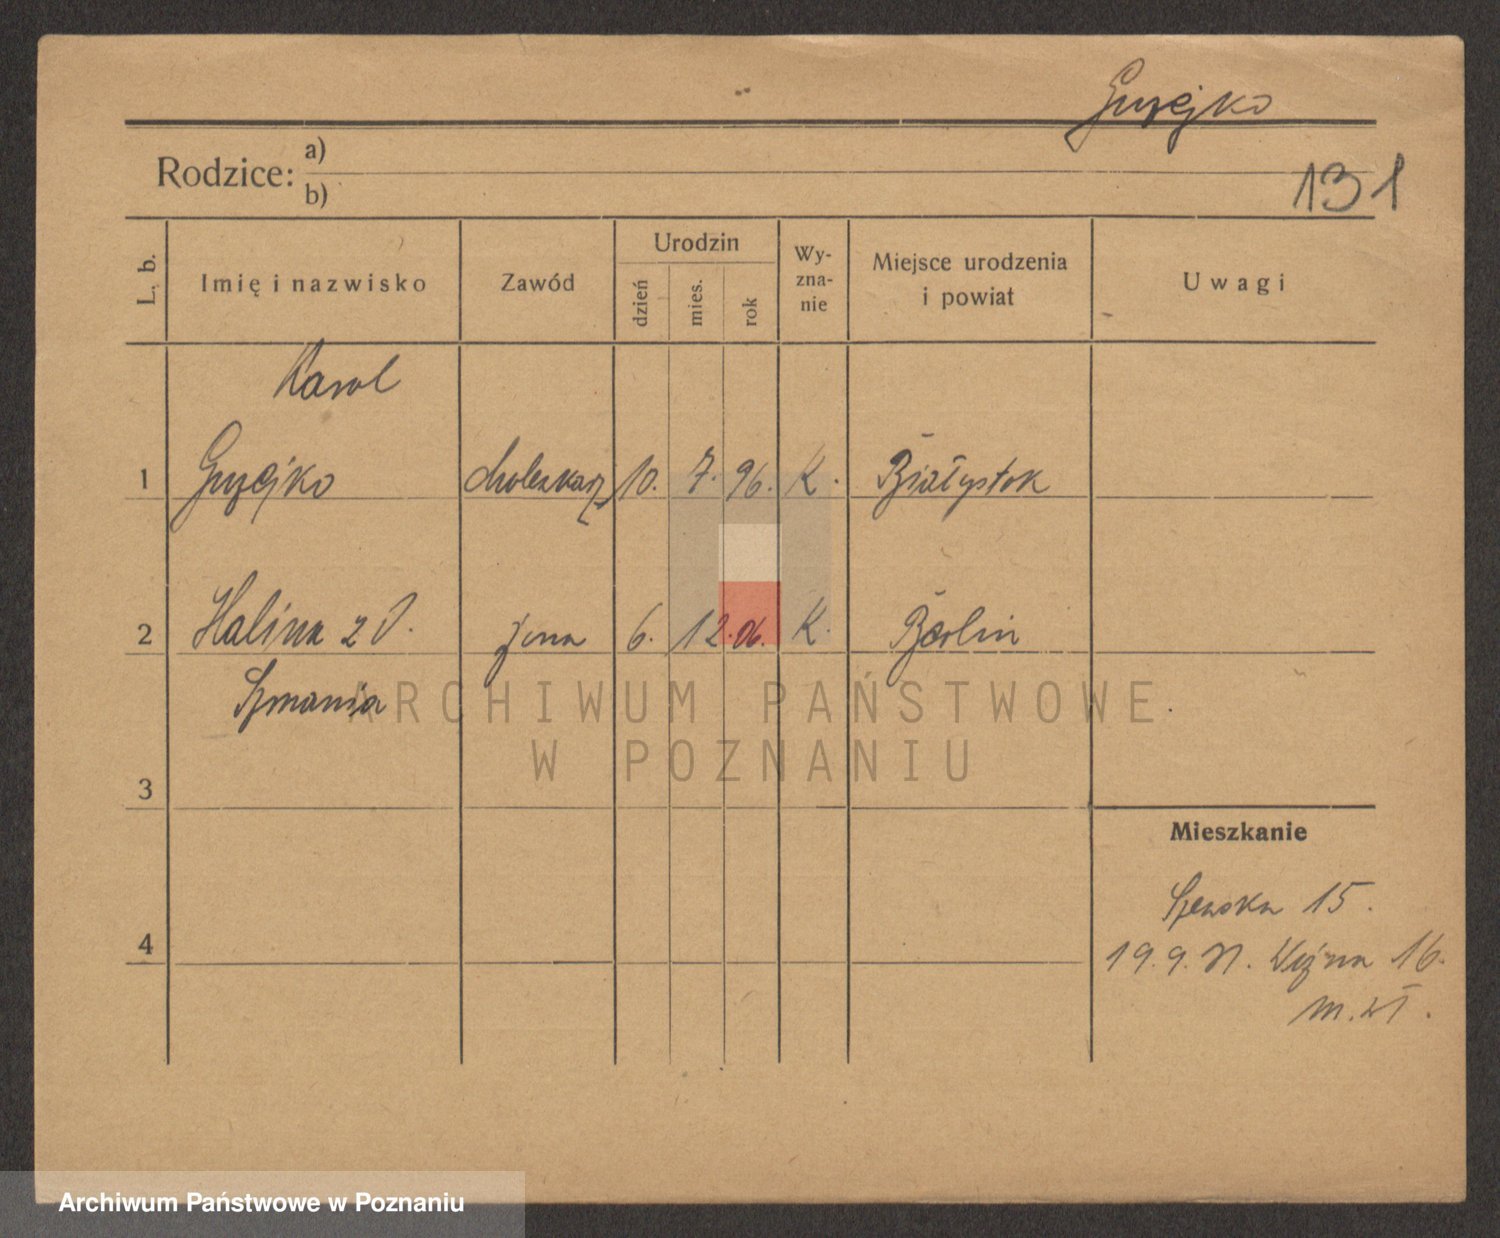 Guzejko
Rodzice: a)
b)
131
L. b.
Imię i nazwisko
Zawód
Urodzin
dzień
mies.
rok
Wy-
zna-
nie
Miejsce urodzenia
i powiat
Uwagi
Karol
1 Guzejko 10. 7. 96. K. Białystok
2 Halina z d. żona 6. 12. 06. K. Berlin
Szmania
3
Mieszkanie
Szewska 15.
4
19.9. 31. Wózna 16.
m. wł.
ARCHIWUM PAŃSTWOWE
W POZNANIU
Archiwum Państwowe w Poznaniu